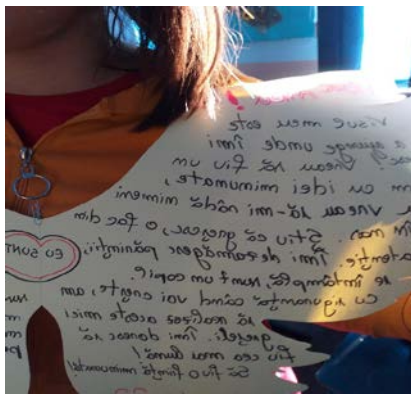 Visul meu este
a ajunge unde îmi
! Vreau să fiu un
om cu idei minunate,
Vreau să-mi râdă nimeni
în nas. Știu că greșesc, o fac din
Îmi dezamăgesc părinții,
se întâmplă, sunt un copil!
Cu siguranță când voi crește, am
să realizez aceste mici
greșeli. Îmi doresc să
fiu cea mai bună!
Să fiu ființă minunată!
EU SUNT